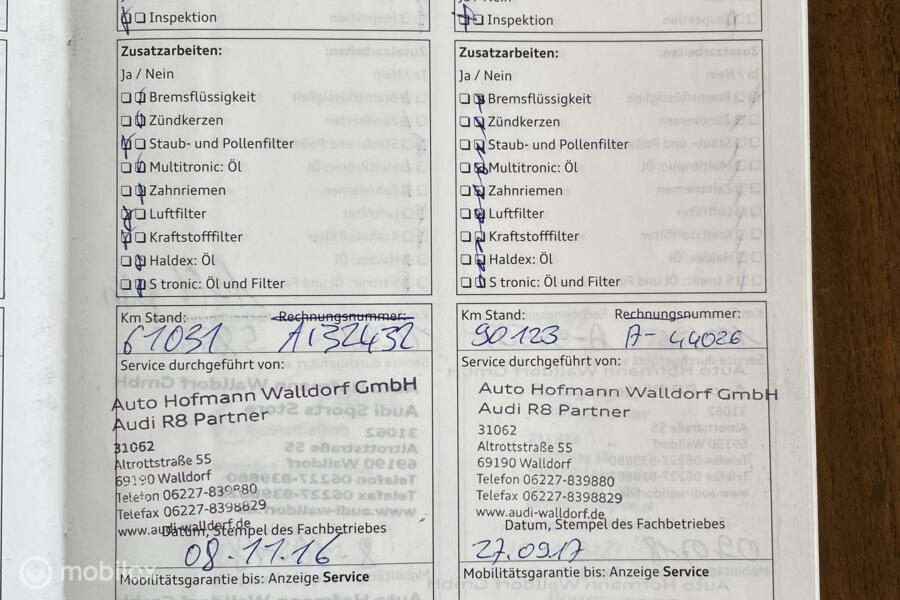 Inspektion
Zusatzarbeiten:
Ja / Nein
Bremsflüssigkeit
Zündkerzen
Staub- und Pollenfilter
Multitronic: Öl
Zahnriemen
Luftfilter
Kraftstofffilter
Haldex: Öl
S tronic: Öl und Filter
Km Stand: Rechnungsnummer:
61031 A132432
Service durchgeführt von:
Auto Hofmann Walldorf GmbH
Audi R8 Partner
31062
Altrottstraße 55
69190 Walldorf
Telefon 06227-839880
Telefax 06227-8398829
www.audi-walldorf.de
Datum, Stempel des Fachbetriebes
08.11.16
Mobilitätsgarantie bis: Anzeige Service
Inspektion
Zusatzarbeiten:
Ja / Nein
Bremsflüssigkeit
Zündkerzen
Staub- und Pollenfilter
Multitronic: Öl
Zahnriemen
Luftfilter
Kraftstofffilter
Haldex: Öl
S tronic: Öl und Filter
Km Stand: Rechnungsnummer:
90123 A-44026
Service durchgeführt von:
Auto Hofmann Walldorf GmbH
Audi R8 Partner
31062
Altrottstraße 55
69190 Walldorf
Telefon 06227-839880
Telefax 06227-8398829
www.audi-walldorf.de
Datum, Stempel des Fachbetriebes
27.09.17
Mobilitätsgarantie bis: Anzeige Service
mobilox